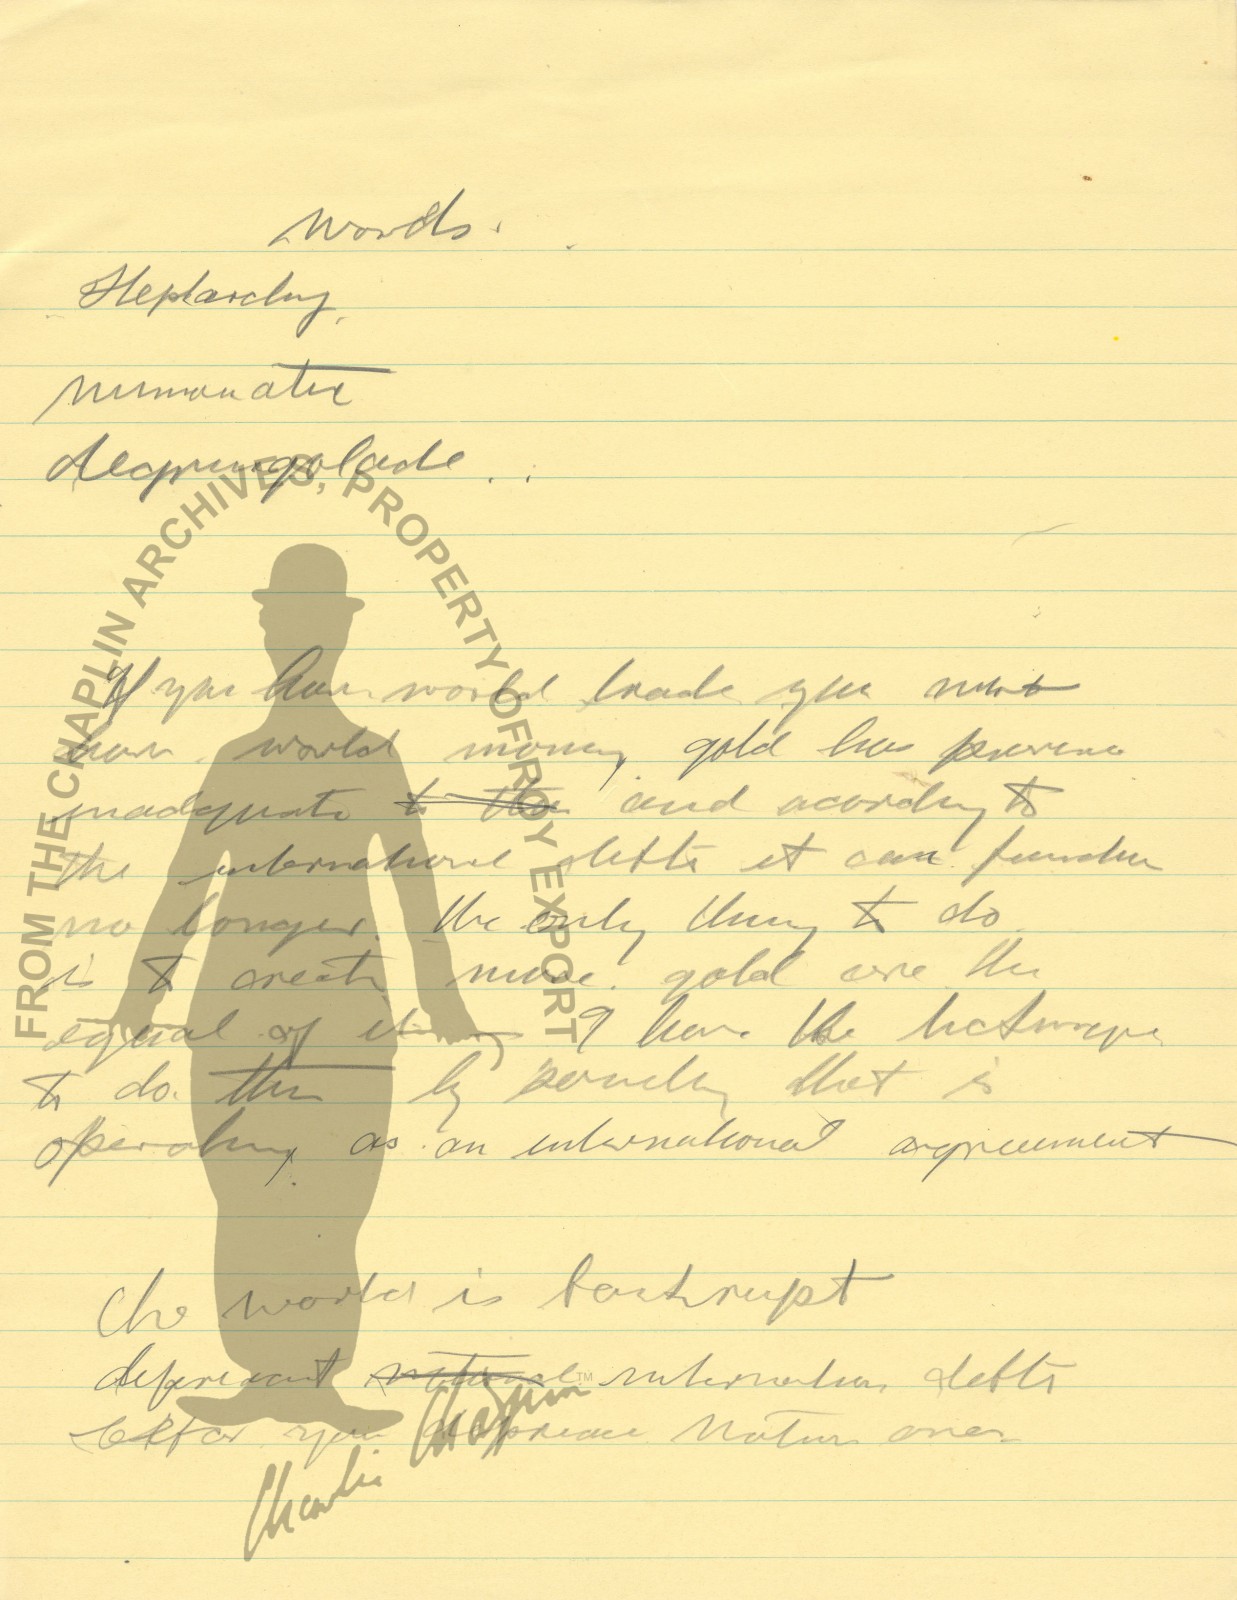 words.
Heptarchy
numonatic
If you have world trade you must
have world money gold has proven
inadequate to the and acording to
the international debts it can function
no longer. the only thing to do
is to create more gold ore the
equal of it I have the
to do this by that is
operating as an international agreement
The world is bankrupt
national internation debts
you
FROM THE CHAPLIN ARCHIVES, PROPERTY OF ROY EXPORT
Charlie Chaplin™